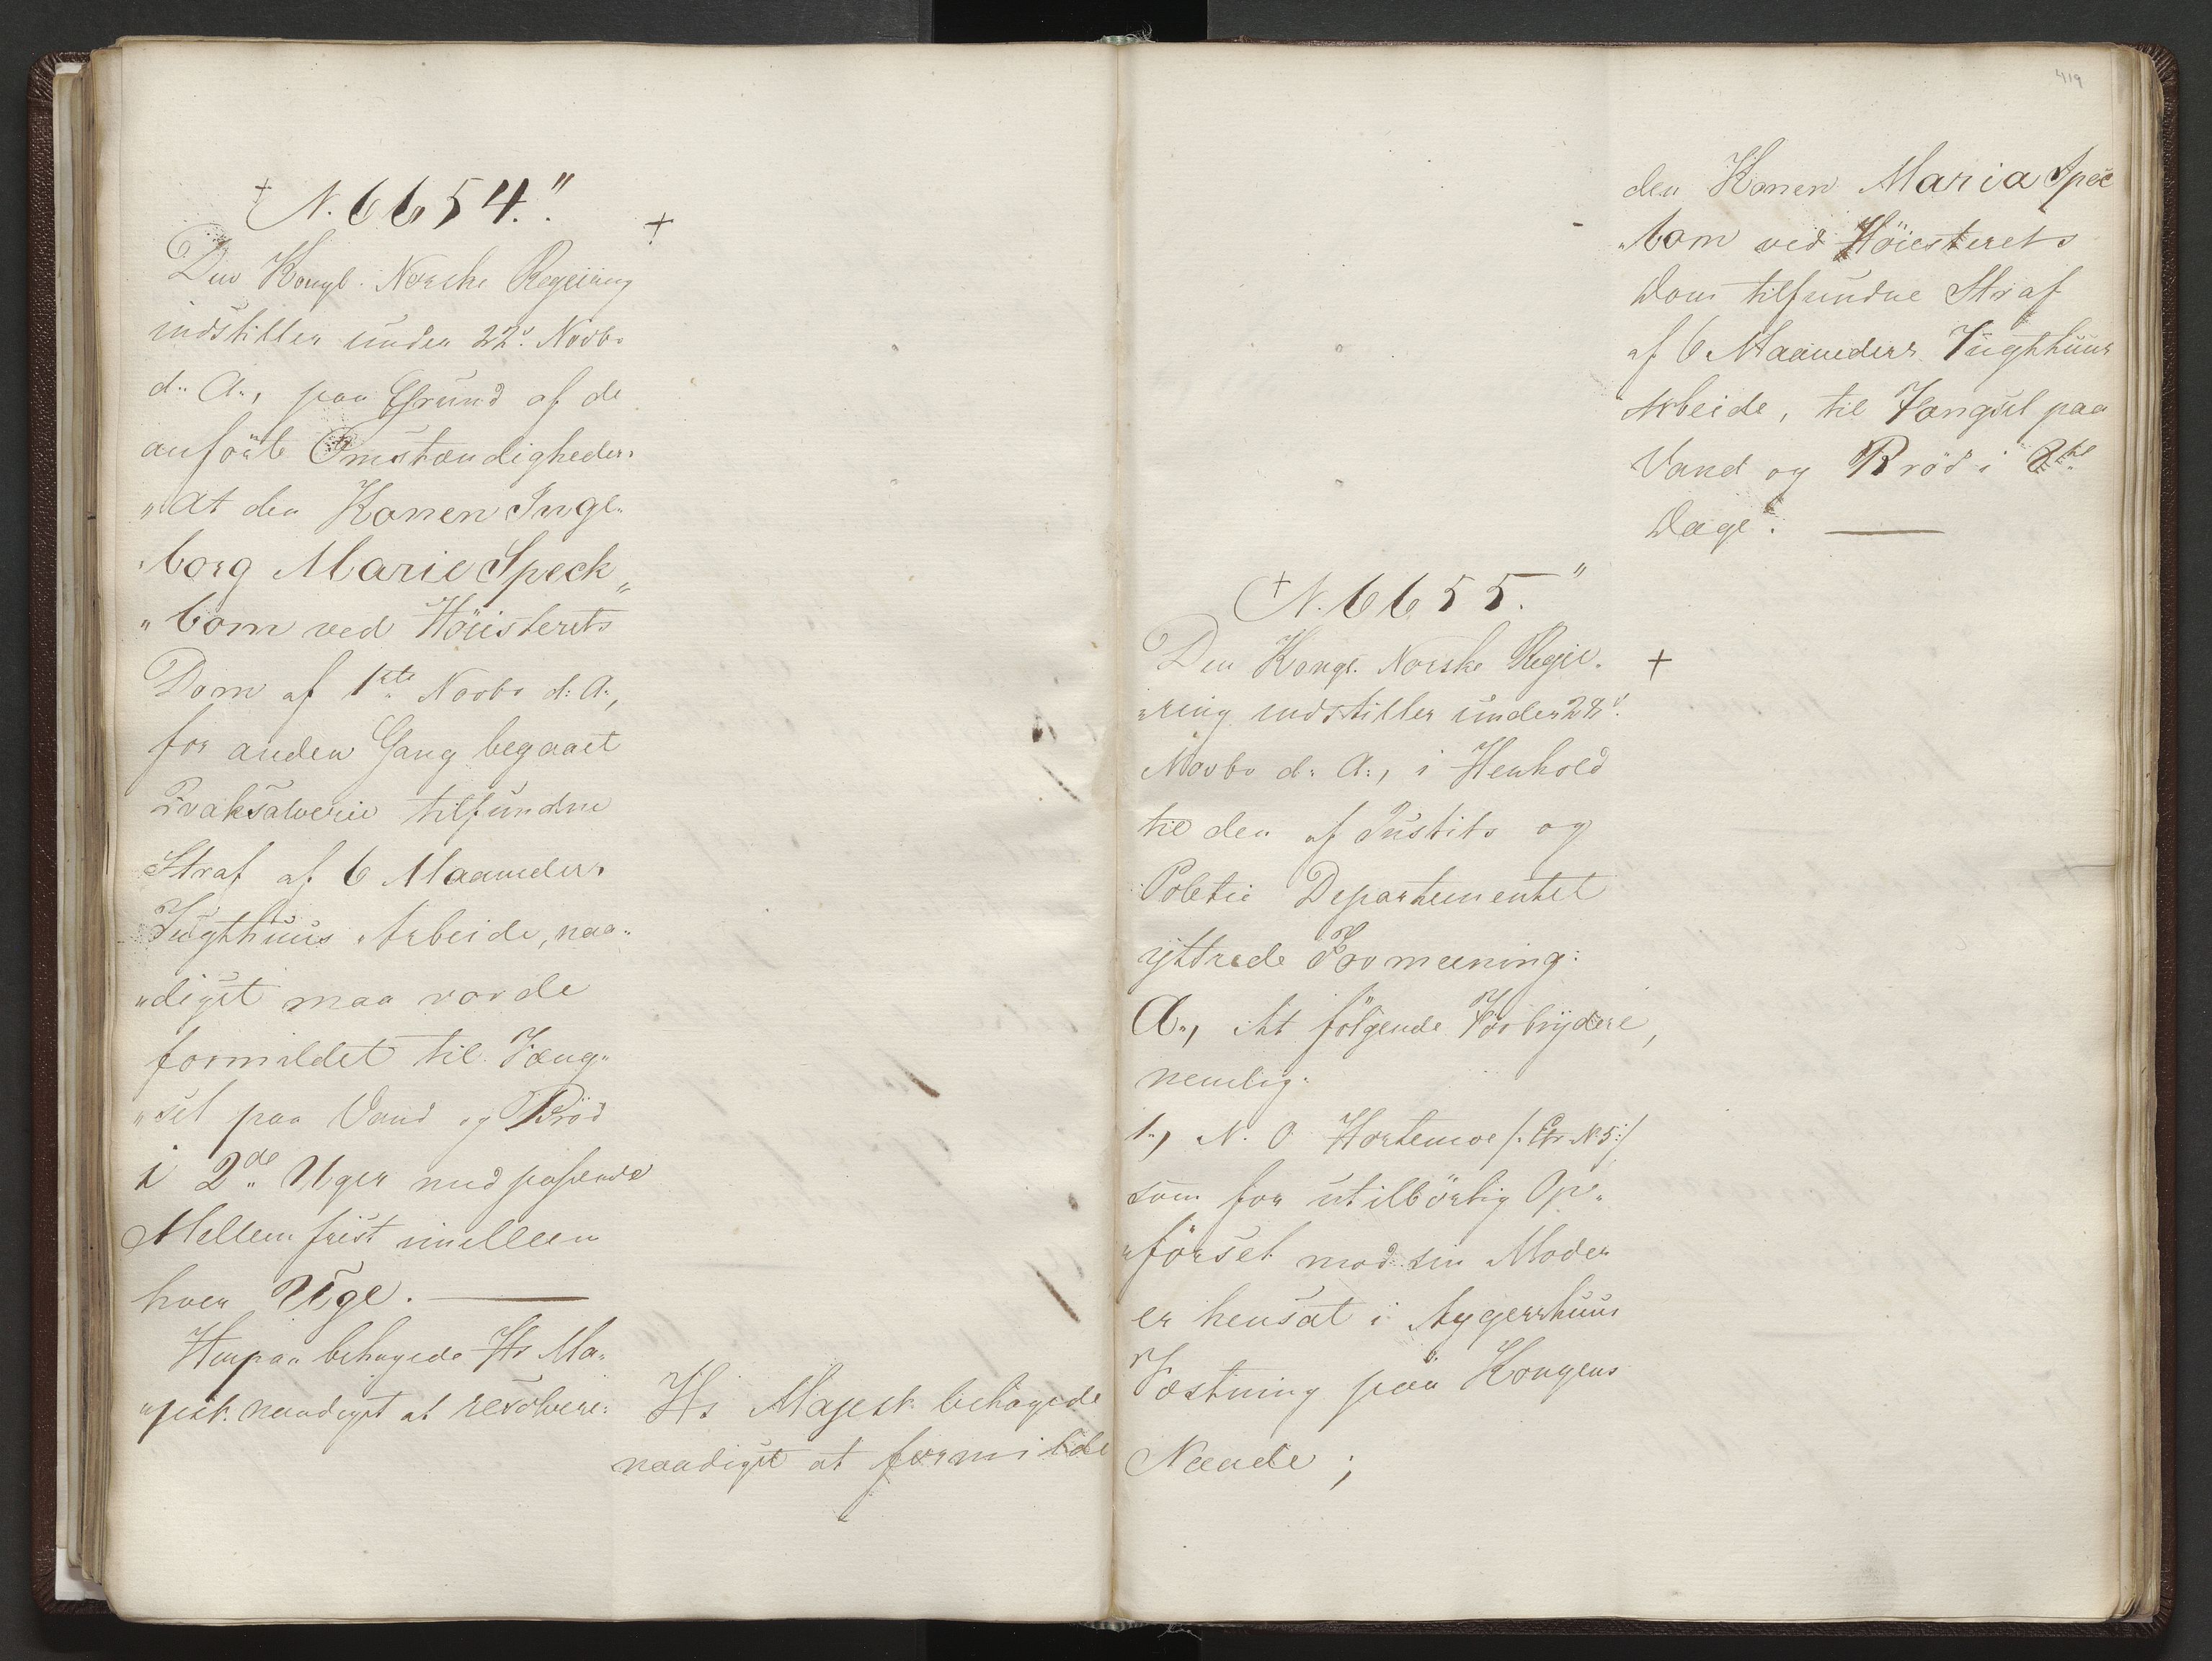 N. 6654."
+
Den Kongl. Norske Regjering
indstiller under 22d. Novbr
d: A:, paa Grund af de
anförte Omstændigheder:
"At den Konen Inge"
"borg Marie Speck"
"bom ved Höiesterets
Dom af 1ste Novbr d: A:,
for anden Gang begaaet
Qvaksalverie tilfundne
Straf af 6 Maaneders
Tugthuus Arbeide, naa"
"digst maa vorde
formildet til Fæng"
"sel paa Vand og Bröd
i 2de Uger med passende
Mellemfrist imellem
hver Uge.
Herpaa behagede Hs Ma"
"jest. naadigst at resolvere:
Hs Majest. behagede
naadigst at formilde
419
den Konen Maria Spec
"bom ved Höiesterets
Dom tilfundne Straf
af 6 Maaneders Tugthuus
Arbeide, til Fængsel paa
Vand og Bröd i 8te
Dage.
N. 6655."
+
Den Kongl. Norske Regje"
"ring indstiller under 28d.
Novbr d: A:, i Henhold
til den af Justits og
Politie Departementet
yttrede Formeening:
A:, At fölgende Forbrydere,
nemlig:
1:, N. O. Hortemoe /: Ptr N 5:/
som for utilbörlig Op"
"försel mod sin Moder
er hensat i Aggershuus
Fæstning paa Kongens
Naade;